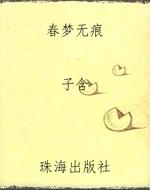 春梦无痕
子含
珠海出版社